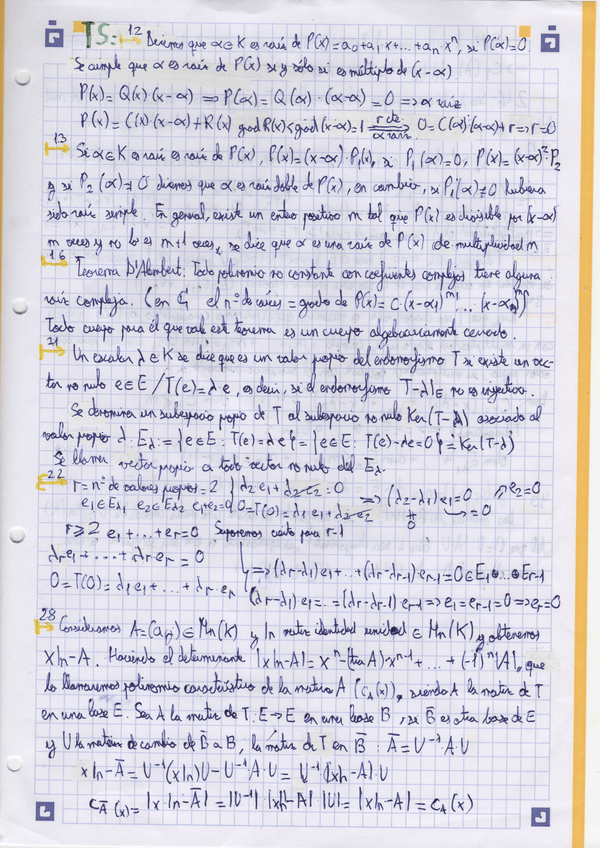 T5: 12 Decimos que α∈K es raíz de P(x)=a₀+a₁·x+...+aₙ·xⁿ, si P(α)=0.
Se cumple que α es raíz de P(x) si y sólo si es múltiplo de (x-α)
P(x)=Q(x)(x-α) ⟹ P(α)=Q(α)·(α-α)=0 ⟹ α raíz
P(x)=C(x)(x-α)+R(x) grad R(x)<grad(x-α)=1 ⟹ 0=C(α)·(α-α)+r ⟹ r=0
13 Si α∈K es raíz de P(x), P(x)=(x-α)·P₁(x), si P₁(α)=0, P(x)=(x-α)²·P₂
y si P₂(α)≠0 diremos que α es raíz doble de P(x), en cambio, si P₁(α)≠0 hubiera
sido raíz simple. En general, existe un entero positivo m tal que P(x) es divisible por (x-α)
m veces y no lo es m+1 veces, se dice que α es una raíz de P(x) de multiplicidad m.
16 Teorema D'Alembert: Todo polinomio no constante con coeficientes complejos tiene alguna
raíz compleja. (en C el nº de raíces = grado de P(x)=C·(x-α₁)^m₁...(x-αₙ)^mₙ)
Todo cuerpo para el que vale este teorema es un cuerpo algebraicamente cerrado.
21 Un escalar λ∈K se dice que es un valor propio del endomorfismo T si existe un vec-
tor no nulo e∈E / T(e)=λe, es decir, si el endomorfismo T-λI_E no es inyectivo.
Se denomina un subespacio propio de T al subespacio no nulo Ker(T-λI) asociado al
valor propio λ: E_λ:={e∈E: T(e)=λe}={e∈E: T(e)-λe=0}=Ker(T-λI)
Se llama vector propio a todo vector no nulo del E_λ.
22 r=nº de valores propios=2 {λ₂e₁+λ₂e₂=0 ⟹ (λ₂-λ₁)e₁=0 ⟹ e₂=0
e₁∈E_λ₁ e₂∈E_λ₂ e₁+e₂=0 0=T(0)=λ₁e₁+λ₂e₂ ≠0 →=0
r≥2 e₁+...+e_r=0 Suponemos cierto para r-1
λ_r e₁+...+λ_r e_r=0 ⟹(λ_r-λ₁)e₁+...+(λ_r-λ_r-1)e_r-1=0∈E₁⊕...⊕E_r-1
0=T(0)=λ₁e₁+...+λ_r e_r (λ_r-λ₁)e₁=...=(λ_r-λ_r-1)e_r-1 ⟹ e₁=e_r-1=0 ⟹ e_r=0
28 Consideramos A=(a_ij)∈Mn(K) y In matriz identidad unidad ∈Mn(K) y obtenemos
xIn-A. Haciendo el determinante |xIn-A|=xⁿ-(tra A)·xⁿ⁻¹+...+(-1)ⁿ|A|, que
lo llamaremos polinomio característico de la matriz A (C_A(x)), siendo A la matriz de T
en una base E. Sea A la matriz de T:E→E en una base B, si B̄ es otra base de E
y U la matriz de cambio de B̄ a B, la matriz de T en B̄: Ā=U⁻¹·A·U
xIn-Ā=U⁻¹(xIn)U-U⁻¹·A·U=U⁻¹(xIn-A)·U
C_Ā(x)=|x·In-Ā|=|U⁻¹|·|xIn-A|·|U|=|xIn-A|=C_A(x)